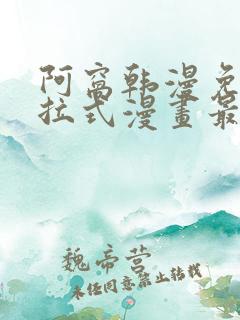 阿窩韩漫免
拉式漫畫最
魏帝营
未经同意禁止转载